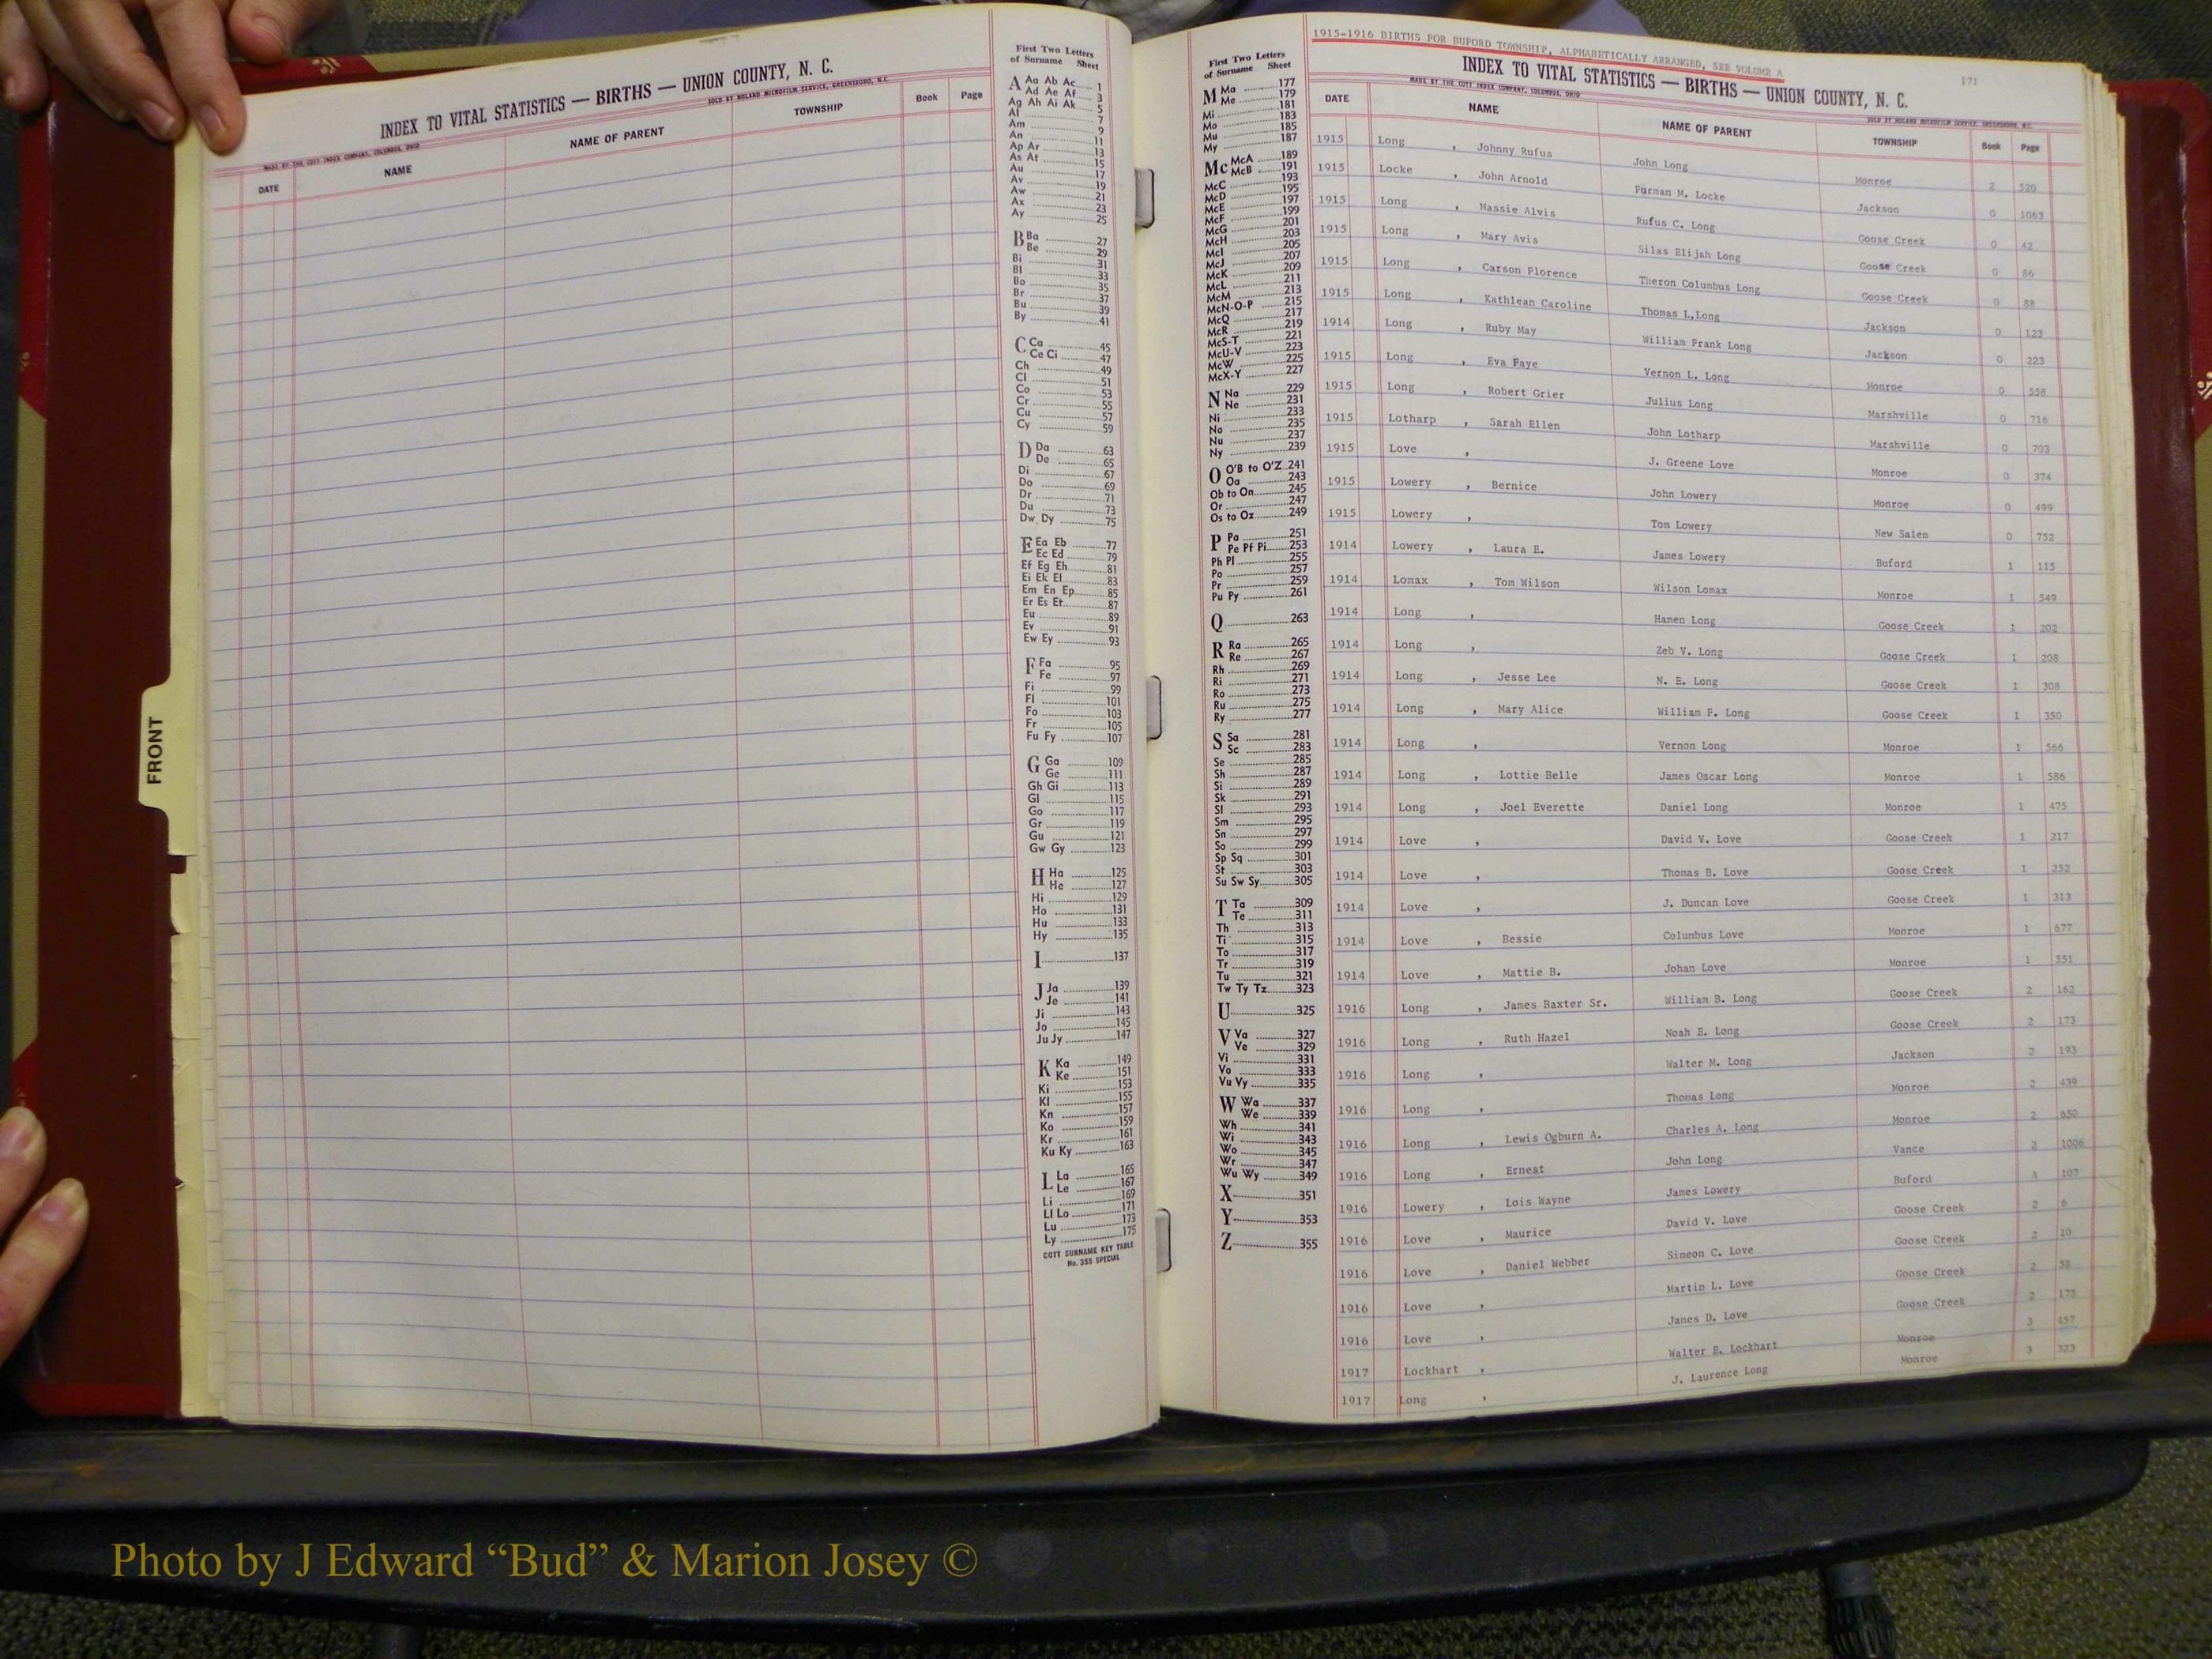 INDEX TO VITAL STATISTICS — BIRTHS — UNION COUNTY, N. C.
MADE BY THE COTT INDEX COMPANY, COLUMBUS, OHIO SOLD BY NOLAND MICROFILM SERVICE, GREENSBORO, N.C.
DATE NAME NAME OF PARENT TOWNSHIP Book Page
FRONT
First Two Letters
of Surname Sheet
A Aa Ab Ac 1
Ad Ae Af 3
Ag Ah Ai Ak 5
Al 7
Am 9
An 11
Ap Ar 13
As At 15
Au 17
Av 19
Aw 21
Ax 23
Ay 25
B Ba 27
Be 29
Bi 31
Bl 33
Bo 35
Br 37
Bu 39
By 41
C Ca 45
Ce Ci 47
Ch 49
Cl 51
Co 53
Cr 55
Cu 57
Cy 59
D Da 63
De 65
Di 67
Do 69
Dr 71
Du 73
Dw Dy 75
E Ea Eb 77
Ec Ed 79
Ef Eg Eh 81
Ei Ek El 83
Em En Ep 85
Er Es Et 87
Eu 89
Ev 91
Ew Ey 93
F Fa 95
Fe 97
Fi 99
Fl 101
Fo 103
Fr 105
Fu Fy 107
G Ga 109
Ge 111
Gh Gi 113
Gl 115
Go 117
Gr 119
Gu 121
Gw Gy 123
H Ha 125
He 127
Hi 129
Ho 131
Hu 133
Hy 135
I 137
J Ja 139
Je 141
Ji 143
Jo 145
Ju Jy 147
K Ka 149
Ke 151
Ki 153
Kl 155
Kn 157
Ko 159
Kr 161
Ku Ky 163
L La 165
Le 167
Li 169
Ll Lo 171
Lu 173
Ly 175
COTT SURNAME KEY TABLE
No. 355 SPECIAL
First Two Letters
of Surname Sheet
M Ma 177
Me 179
Mi 181
Mo 183
Mu 185
My 187
Mc McA 189
McB 191
McC 193
McD 195
McE 197
McF 199
McG 201
McH 203
McI 205
McJ 207
McK 209
McL 211
McM 213
McN-O-P 215
McQ 217
McR 219
McS-T 221
McU-V 223
McW 225
McX-Y 227
N Na 229
Ne 231
Ni 233
No 235
Nu 237
Ny 239
O O'B to O'Z 241
Oa 243
Ob to On 245
Or 247
Os to Oz 249
P Pa 251
Pe Pf Pi 253
Ph Pl 255
Po 257
Pr 259
Pu Py 261
Q 263
R Ra 265
Re 267
Rh 269
Ri 271
Ro 273
Ru 275
Ry 277
S Sa 281
Sc 283
Se 285
Sh 287
Si 289
Sk 291
Sl 293
Sm 295
Sn 297
So 299
Sp Sq 301
St 303
Su Sw Sy 305
T Ta 309
Te 311
Th 313
Ti 315
To 317
Tr 319
Tu 321
Tw Ty Tz 323
U 325
V Va 327
Ve 329
Vi 331
Vo 333
Vu Vy 335
W Wa 337
We 339
Wh 341
Wi 343
Wo 345
Wr 347
Wu Wy 349
X 351
Y 353
Z 355
1915-1916 BIRTHS FOR BUFORD TOWNSHIP, ALPHABETICALLY ARRANGED, SEE VOLUME A
171
INDEX TO VITAL STATISTICS — BIRTHS — UNION COUNTY, N. C.
MADE BY THE COTT INDEX COMPANY, COLUMBUS, OHIO SOLD BY NOLAND MICROFILM SERVICE, GREENSBORO, N.C.
DATE NAME NAME OF PARENT TOWNSHIP Book Page
1915 Long , Johnny Rufus John Long Monroe 2 520
1915 Locke , John Arnold Furman M. Locke Jackson 0 1063
1915 Long , Massie Alvis Rufus C. Long Goose Creek 0 42
1915 Long , Mary Avis Silas Elijah Long Goose Creek 0 86
1915 Long , Carson Florence Theron Columbus Long Goose Creek 0 88
1915 Long , Kathlean Caroline Thomas L.Long Jackson 0 123
1914 Long , Ruby May William Frank Long Jackson 0 223
1915 Long , Eva Faye Vernon L. Long Monroe 0 558
1915 Long , Robert Grier Julius Long Marshville 0 716
1915 Lotharp , Sarah Ellen John Lotharp Marshville 0 703
1915 Love , J. Greene Love Monroe 0 374
1915 Lowery , Bernice John Lowery Monroe 0 499
1915 Lowery , Tom Lowery New Salem 0 752
1914 Lowery , Laura E. James Lowery Buford 1 115
1914 Lomax , Tom Wilson Wilson Lomax Monroe 1 549
1914 Long , Hamen Long Goose Creek 1 202
1914 Long , Zeb V. Long Goose Creek 1 208
1914 Long , Jesse Lee N. E. Long Goose Creek 1 308
1914 Long , Mary Alice William F. Long Goose Creek 1 350
1914 Long , Vernon Long Monroe 1 566
1914 Long , Lottie Belle James Oscar Long Monroe 1 586
1914 Long , Joel Everette Daniel Long Monroe 1 475
1914 Love , David V. Love Goose Creek 1 217
1914 Love , Thomas B. Love Goose Creek 1 252
1914 Love , J. Duncan Love Goose Creek 1 313
1914 Love , Bessie Columbus Love Monroe 1 677
1914 Love , Mattie B. Johan Love Monroe 1 351
1916 Long , James Baxter Sr. William B. Long Goose Creek 2 162
1916 Long , Ruth Hazel Noah E. Long Goose Creek 2 173
1916 Long , Walter M. Long Jackson 2 193
1916 Long , Thomas Long Monroe 2 439
1916 Long , Lewis Ogburn A. Charles A. Long Monroe 2 650
1916 Long , Ernest John Long Vance 2 1006
1916 Lowery , Lois Wayne James Lowery Buford A 107
1916 Love , Maurice David V. Love Goose Creek 2 6
1916 Love , Daniel Webber Simeon C. Love Goose Creek 2 10
1916 Love , Martin L. Love Goose Creek 2 58
1916 Love , James D. Love Goose Creek 2 175
1917 Lockhart , Walter B. Lockhart Monroe 3 457
1917 Long , J. Laurence Long Monroe 3 323
Photo by J Edward “Bud” & Marion Josey ©